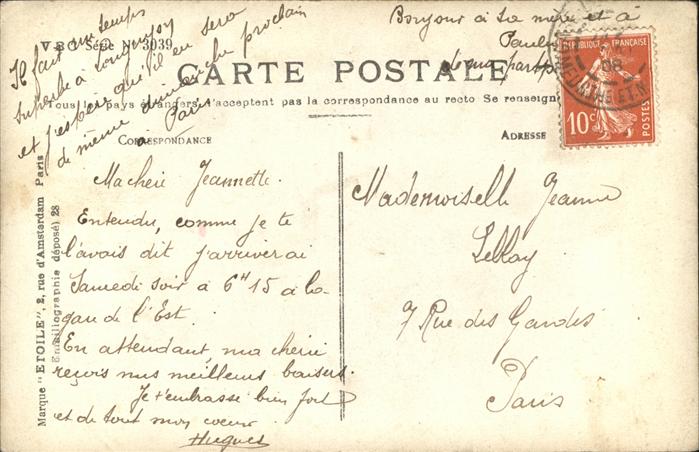 Il fait un temps
superbe à Longwy
et j'espère qu'il en sera
de même dimanche prochain
à Paris
Bonjour à ta mère et à
Paule
de ma part
V B C Série Nº 3039
CARTE POSTALE
Tous les pays étrangers n'acceptent pas la correspondance au recto Se renseign
CORRESPONDANCE
ADRESSE
RÉPUBLIQUE FRANÇAISE
10c
08
MEURTHE ET M
Ma chérie Jeannette.
Entendu, comme je te
l'avais dit j'arriverai
Samedi soir à 6H 15 à la
gare de l'Est.
En attendant, ma chérie
reçois mes meilleurs baisers.
Je t'embrasse bien fort
et de tout mon coeur
Hugues
Mademoiselle Jeanne
7 Rue des
Paris
Marque "ETOILE", 2, rue d'Amsterdam Paris
(déposé) 28